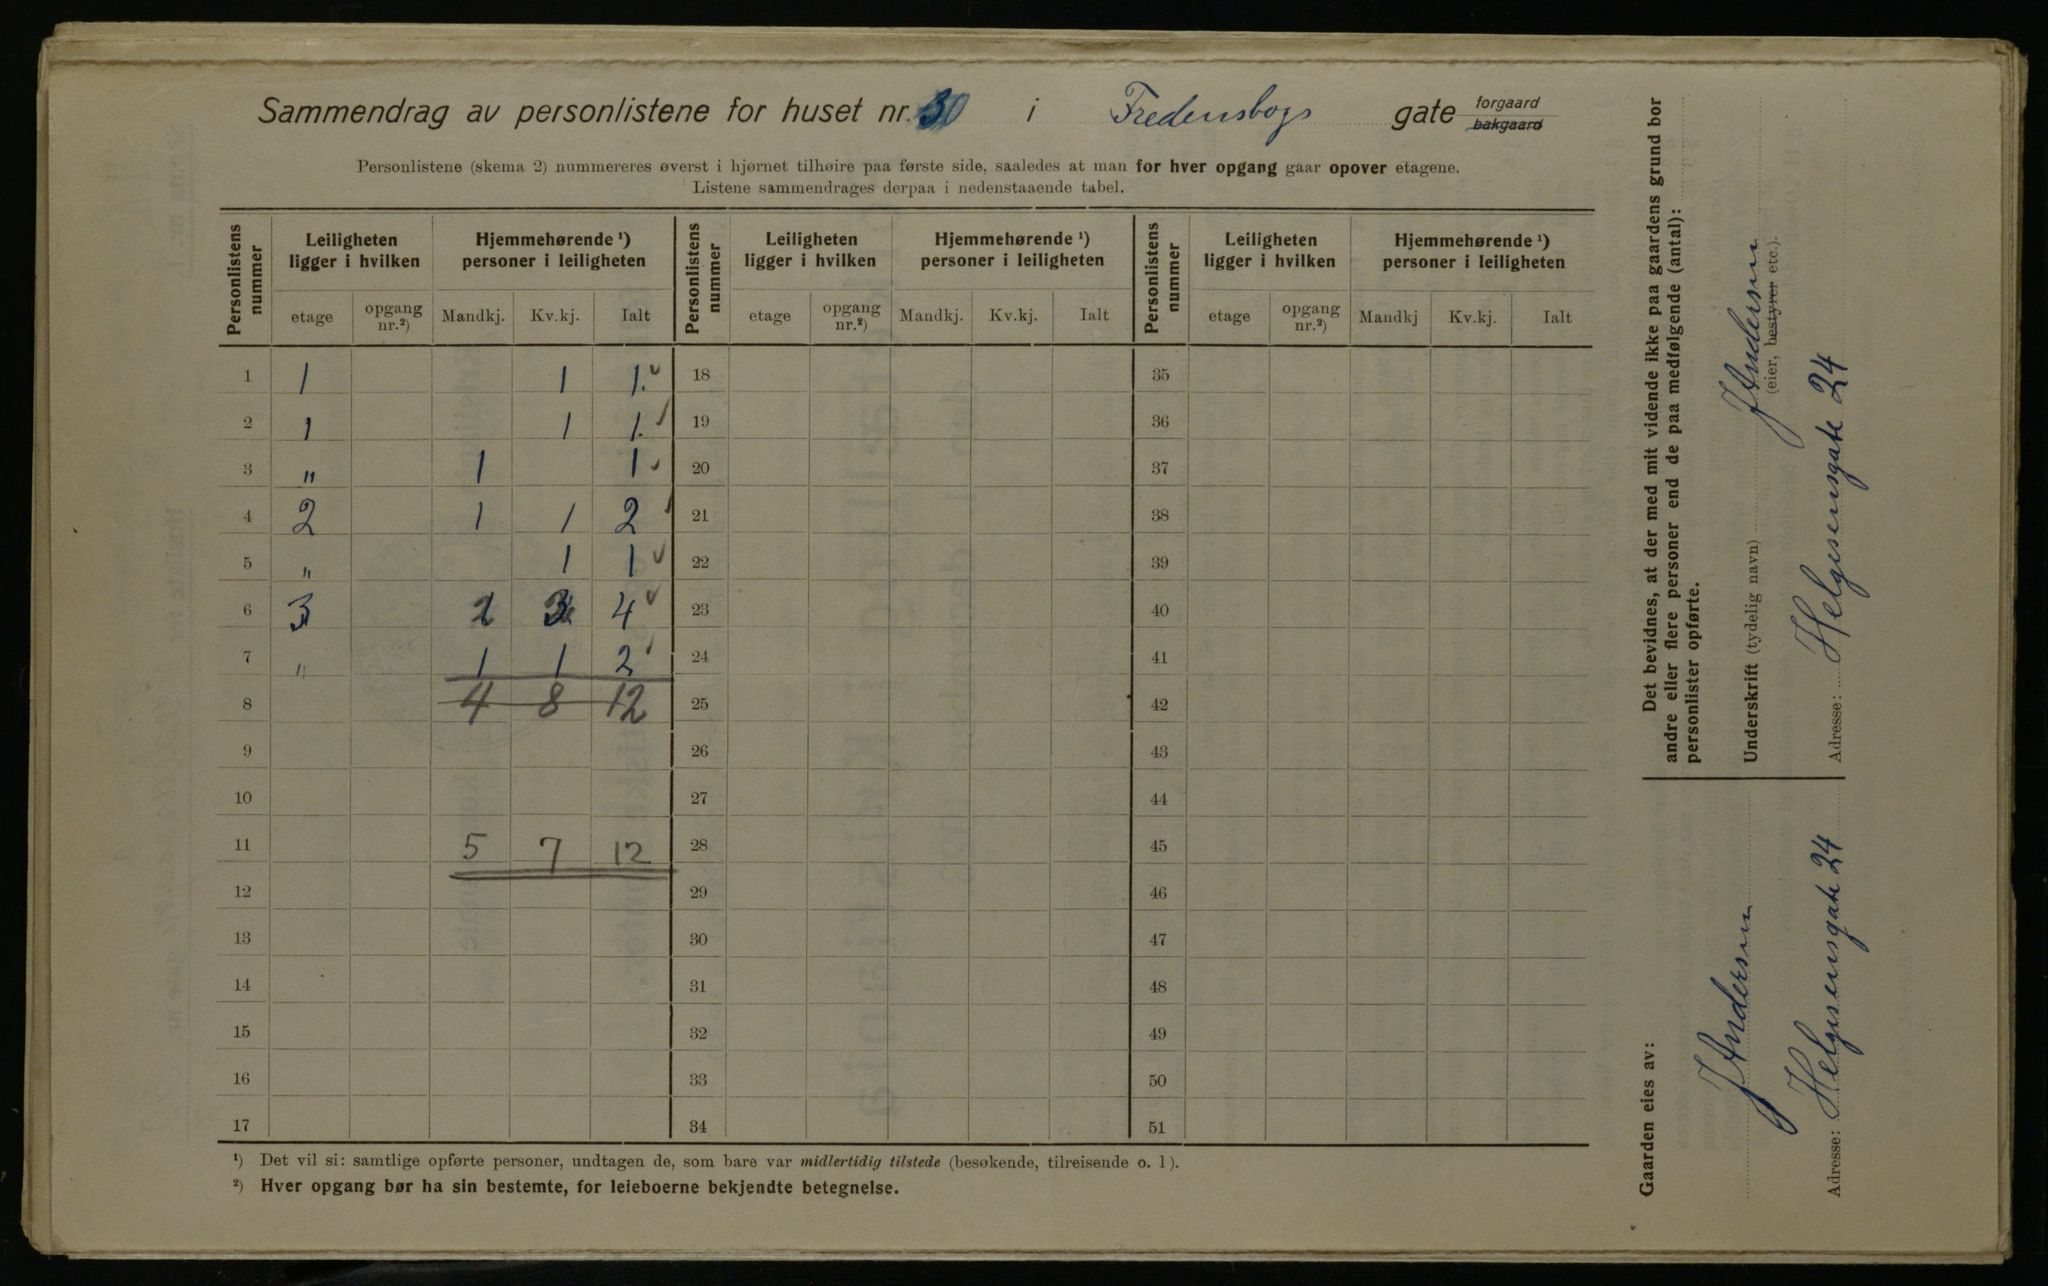 Sammendrag av personlistene for huset nr. 30 i Fredensbogs gate forgaard bakgaard
Personlistene (skema 2) nummereres øverst i hjørnet tilhøire paa første side, saaledes at man for hver opgang gaar opover etagene.
Listene sammendrages derpaa i nedenstaaende tabel.
Personlistens nummer Leiligheten ligger i hvilken Hjemmehørende ¹) personer i leiligheten Personlistens nummer Leiligheten ligger i hvilken Hjemmehørende ¹) personer i leiligheten Personlistens nummer Leiligheten ligger i hvilken Hjemmehørende ¹) personer i leiligheten
etage opgang nr.²) Mandkj. Kv.kj. Ialt etage opgang nr.²) Mandkj. Kv.kj. Ialt etage opgang nr.²) Mandkj Kv.kj. Ialt
1 1 1 1. 18 35
2 1 1 1. 19 36
3 " 1 1 20 37
4 2 1 1 2 21 38
5 " 1 1 22 39
6 3 4 23 40
7 " 1 1 2 24 41
8 4 8 12 25 42
9 26 43
10 27 44
11 5 7 12 28 45
12 29 46
13 30 47
14 31 48
15 32 49
16 33 50
17 34 51
¹) Det vil si: samtlige opførte personer, undtagen de, som bare var midlertidig tilstede (besøkende, tilreisende o. l).
²) Hver opgang bør ha sin bestemte, for leieboerne bekjendte betegnelse.
Det bevidnes, at der med mit vidende ikke paa gaardens grund bor
andre eller flere personer end de paa medfølgende (antal):
personlister opførte.
Underskrift (tydelig navn) J Andersen
(eier, bestyrer etc.).
Adresse: Helgesensgate 24
Gaarden eies av:
J Andersen
Adresse: Helgesensgate 24